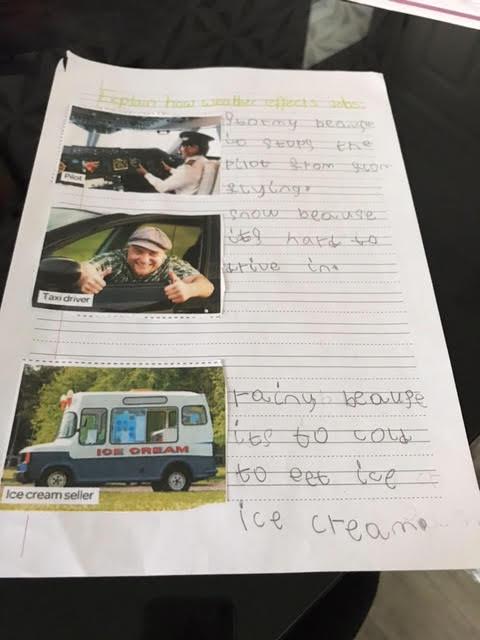 Explain how weather effects Jobs:
Stormy beause
it stops the
Pilot
pilot from
flying.
Snow beause
its hard to
drive in.
Taxi driver
rainy beause
its to cold
ICE CREAM
to eet ice
Ice cream seller
ice cream.